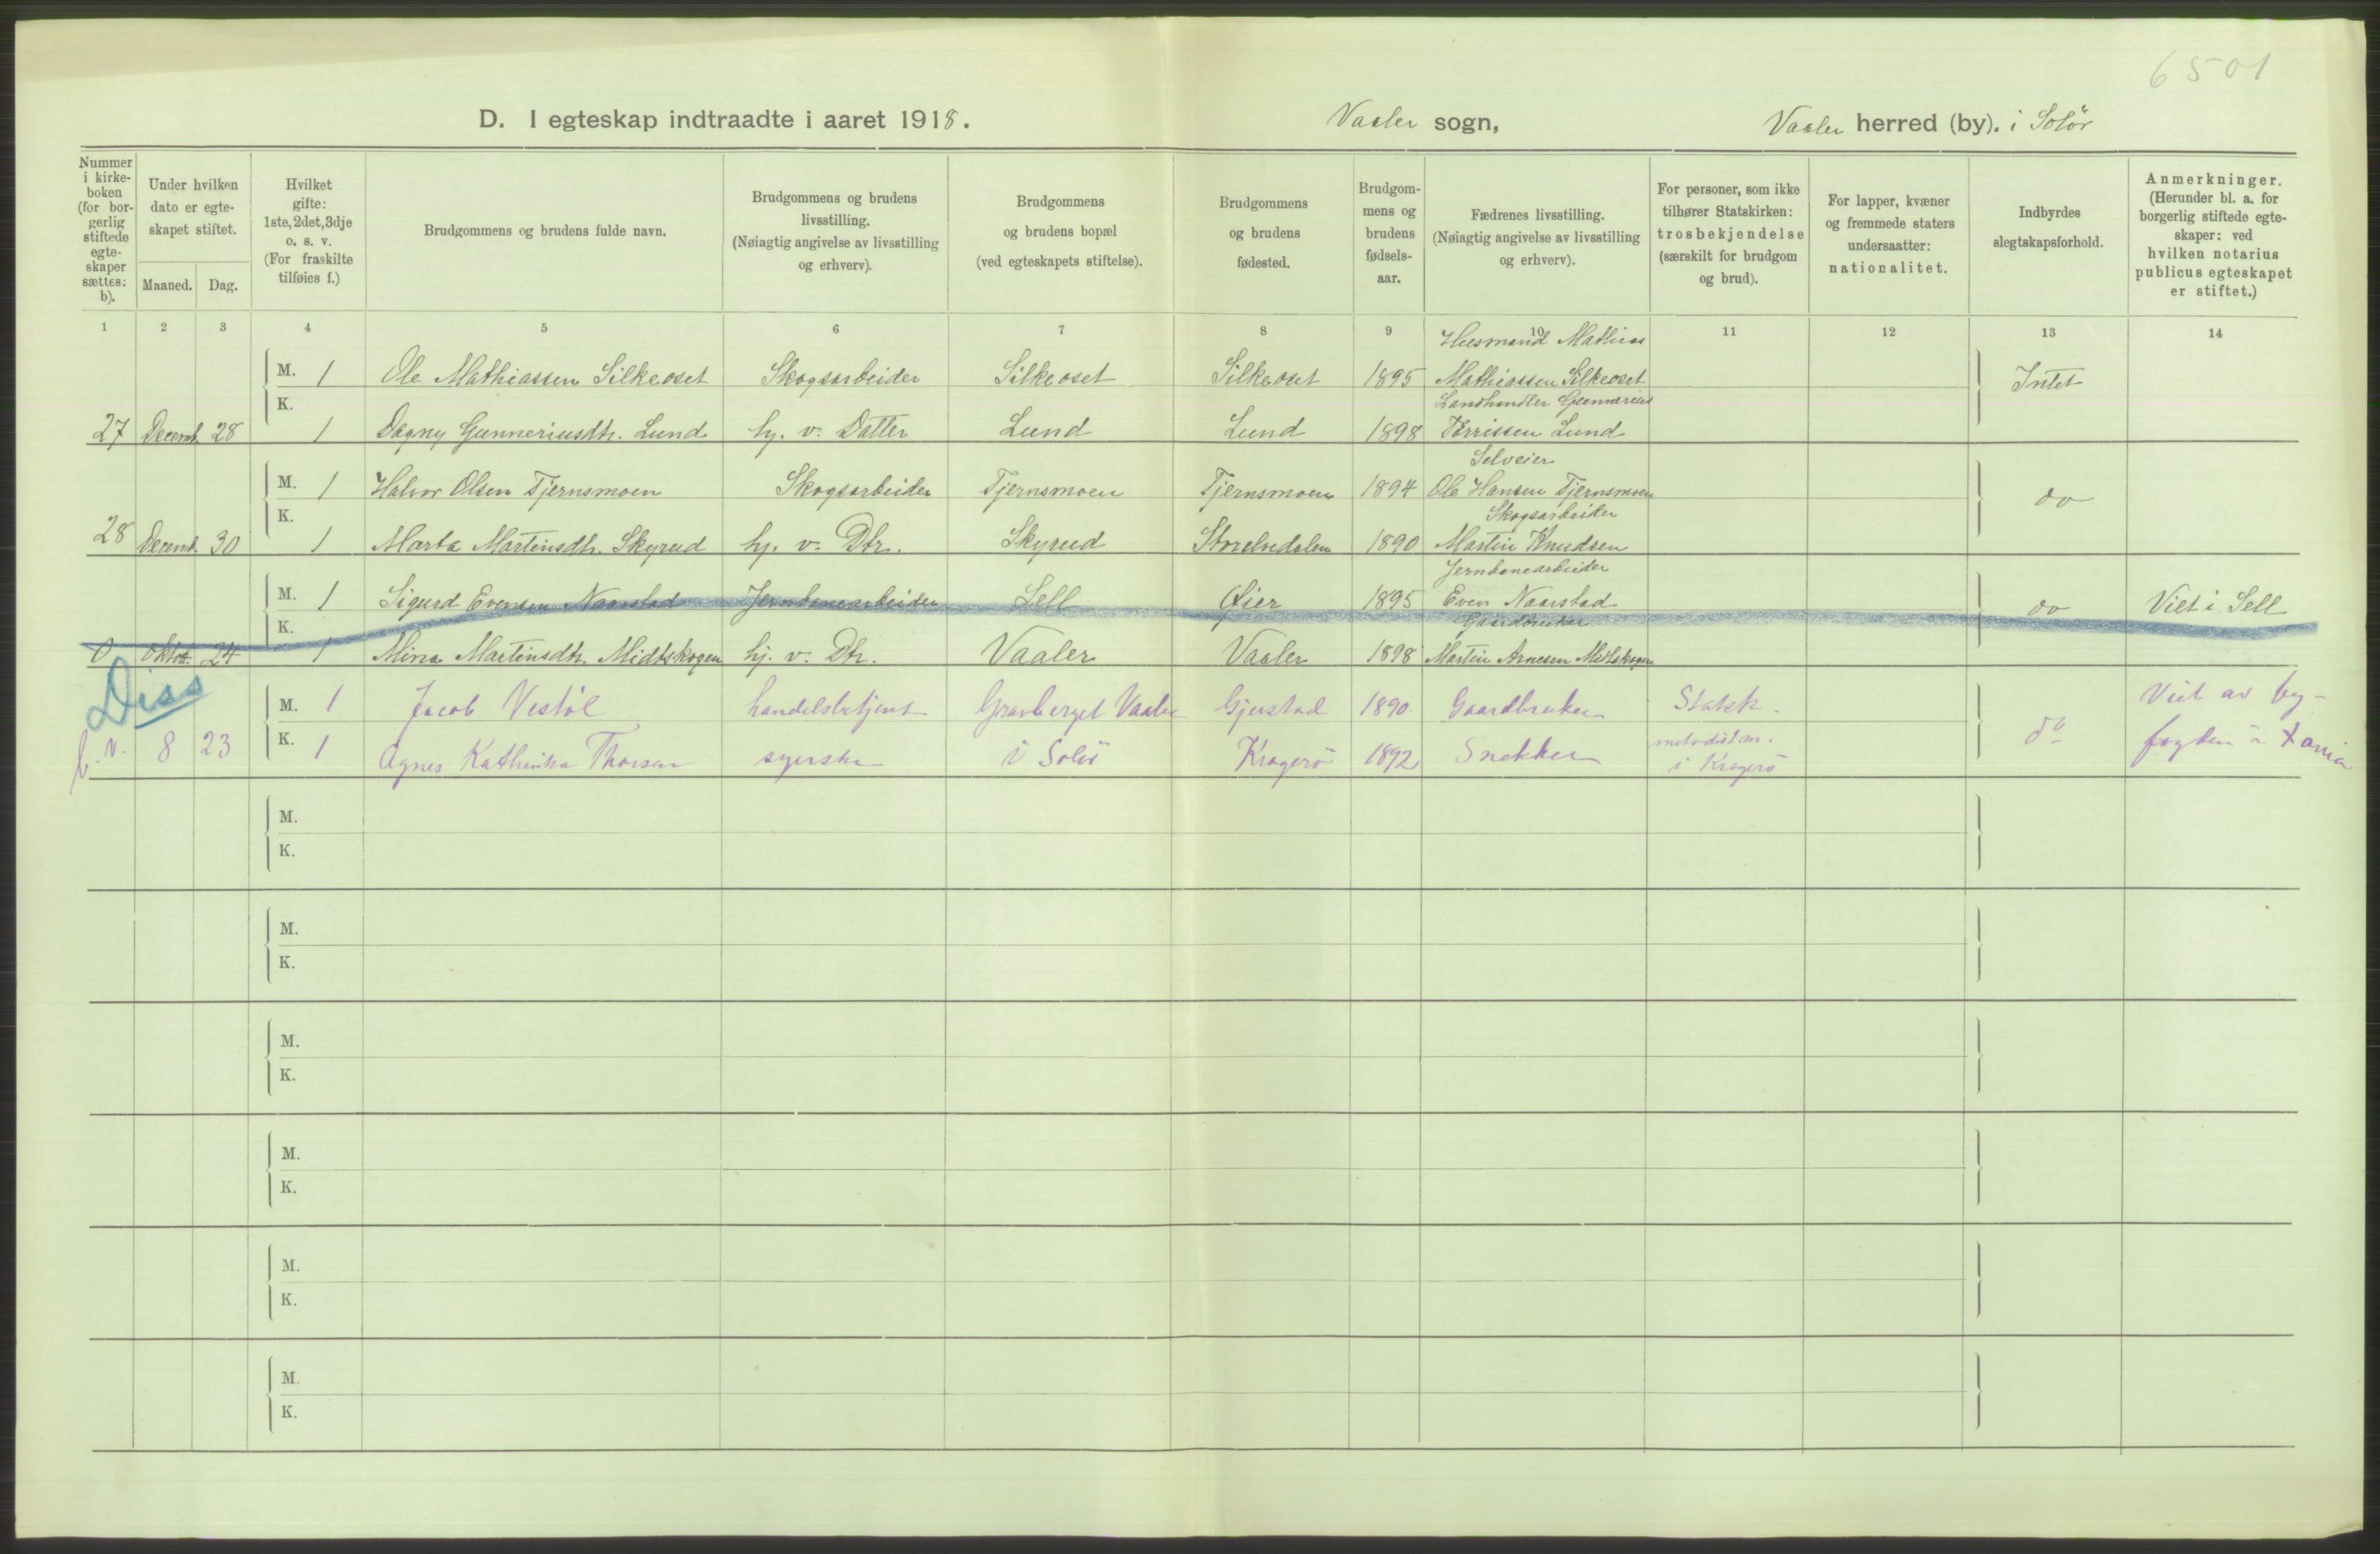 6501
D. I egteskap indtraadte i aaret 1918. Vaaler sogn, Vaaler herred (by). i Solør
Nummer i kirkeboken (for borgerlig stiftede egteskaper sættes: b).
Under hvilken dato er egteskapet stiftet.
Maaned. Dag.
Hvilket gifte: 1ste, 2det, 3dje o. s. v. (For fraskilte tilføies f.)
Brudgommens og brudens fulde navn.
Brudgommens og brudens livsstilling. (Nøiagtig angivelse av livsstilling og erhverv).
Brudgommens og brudens bopæl (ved egteskapets stiftelse).
Brudgommens og brudens fødested.
Brudgommens og brudens fødselsaar.
Fædrenes livsstilling. (Nøiagtig angivelse av livsstilling og erhverv).
For personer, som ikke tilhører Statskirken: trosbekjendelse (særskilt for brudgom og brud).
For lapper, kvæner og fremmede staters undersaatter: nationalitet.
Indbyrdes slegtskapsforhold.
Anmerkninger. (Herunder bl. a. for borgerlig stiftede egteskaper: ved hvilken notarius publicus egteskapet er stiftet.)
1 2 3 4 5 6 7 8 9 10 11 12 13 14
Husmand Mathias
M. 1 Ole Mathiassen Silkeoset Skogsarbeider Silkeoset Silkeoset 1895 Mathiassen Silkeoset Intet
K. Landhandler Gunnerius
27 Decemb. 28 1 Dagny Gunneriusdtr. Lund hj. v. Datter Lund Lund 1898 Torrissen Lund
Selveier
M. 1 Halvor Olsen Tjernsmoen Skogsarbeider Tjernsmoen Tjernsmoen 1894 Ole Hansen Tjernsmoen do
K. Skogsarbeider
28 Decemb. 30 1 Marta Martinsdtr. Skyrud hj. v. Dtr. Skyrud Storelvedalen 1890 Martin Knudsen
Jernbanearbeider
M. 1 Sigurd Evensen Naarstad Jernbanearbeider Sell Øier 1895 Even Naarstad do Viet i Sell
K. Gaardbruker
0 Oktob. 24 1 Mina Martinsdtr. Midtskogen hj. v. Dtr. Vaaler Vaaler 1898 Martin Arnesen Midtskogen
Diss
M. 1 Jacob Vestøl handelsbetjent Gravberget Vaaler Gjerstad 1890 Gaardbruker Statsk. do Viet av by-
b. v. 8 23 K. 1 Agnes Kathinka Thorsen syerske i Solør Kragerø 1892 Snekker metodist m. i Kragerø fogden i Xania
M.
K.
M.
K.
M.
K.
M.
K.
M.
K.
M.
K.